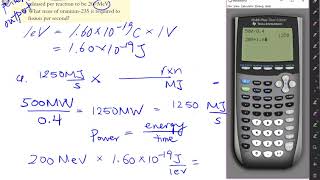 released per reaction to be 200 MeV.
What mass of uranium-235 is required to
fission per second?
1eV = 1.60×10⁻¹⁹C × 1V
= 1.60×10⁻¹⁹J
a. 1250MJ/s × rxn/MJ =
500MW/0.4 = 1250MW = 1250 MJ/s
Power = energy/time
200 MeV × 1.60×10⁻¹⁹J/1eV =
500/0.4
1250
TEXAS INSTRUMENTS